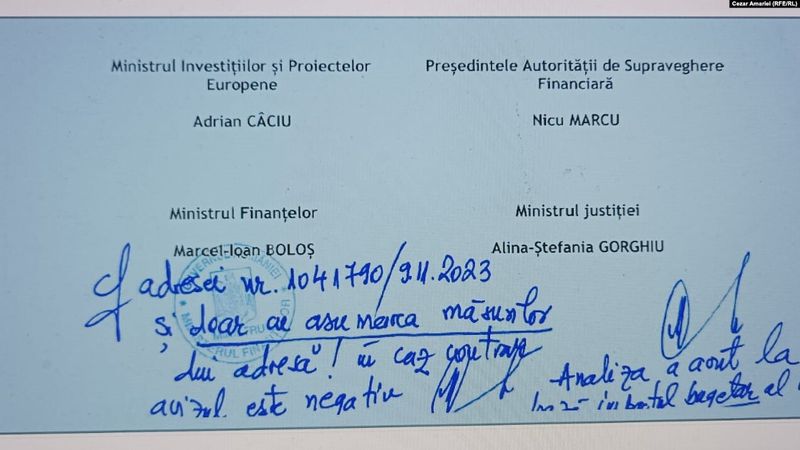 Cezar Amariei (RFE/RL)
Ministrul Investițiilor și Proiectelor
Europene
Adrian CÂCIU
Președintele Autorității de Supraveghere
Financiară
Nicu MARCU
Ministrul Finanțelor
Marcel-Ioan BOLOȘ
Ministrul justiției
Alina-Ștefania GORGHIU
adresei nr. 1041790/9.11.2023
și doar cu asumarea măsurilor
din adresă! în caz contrar
avizul este negativ
Analiza a avut la
bază al